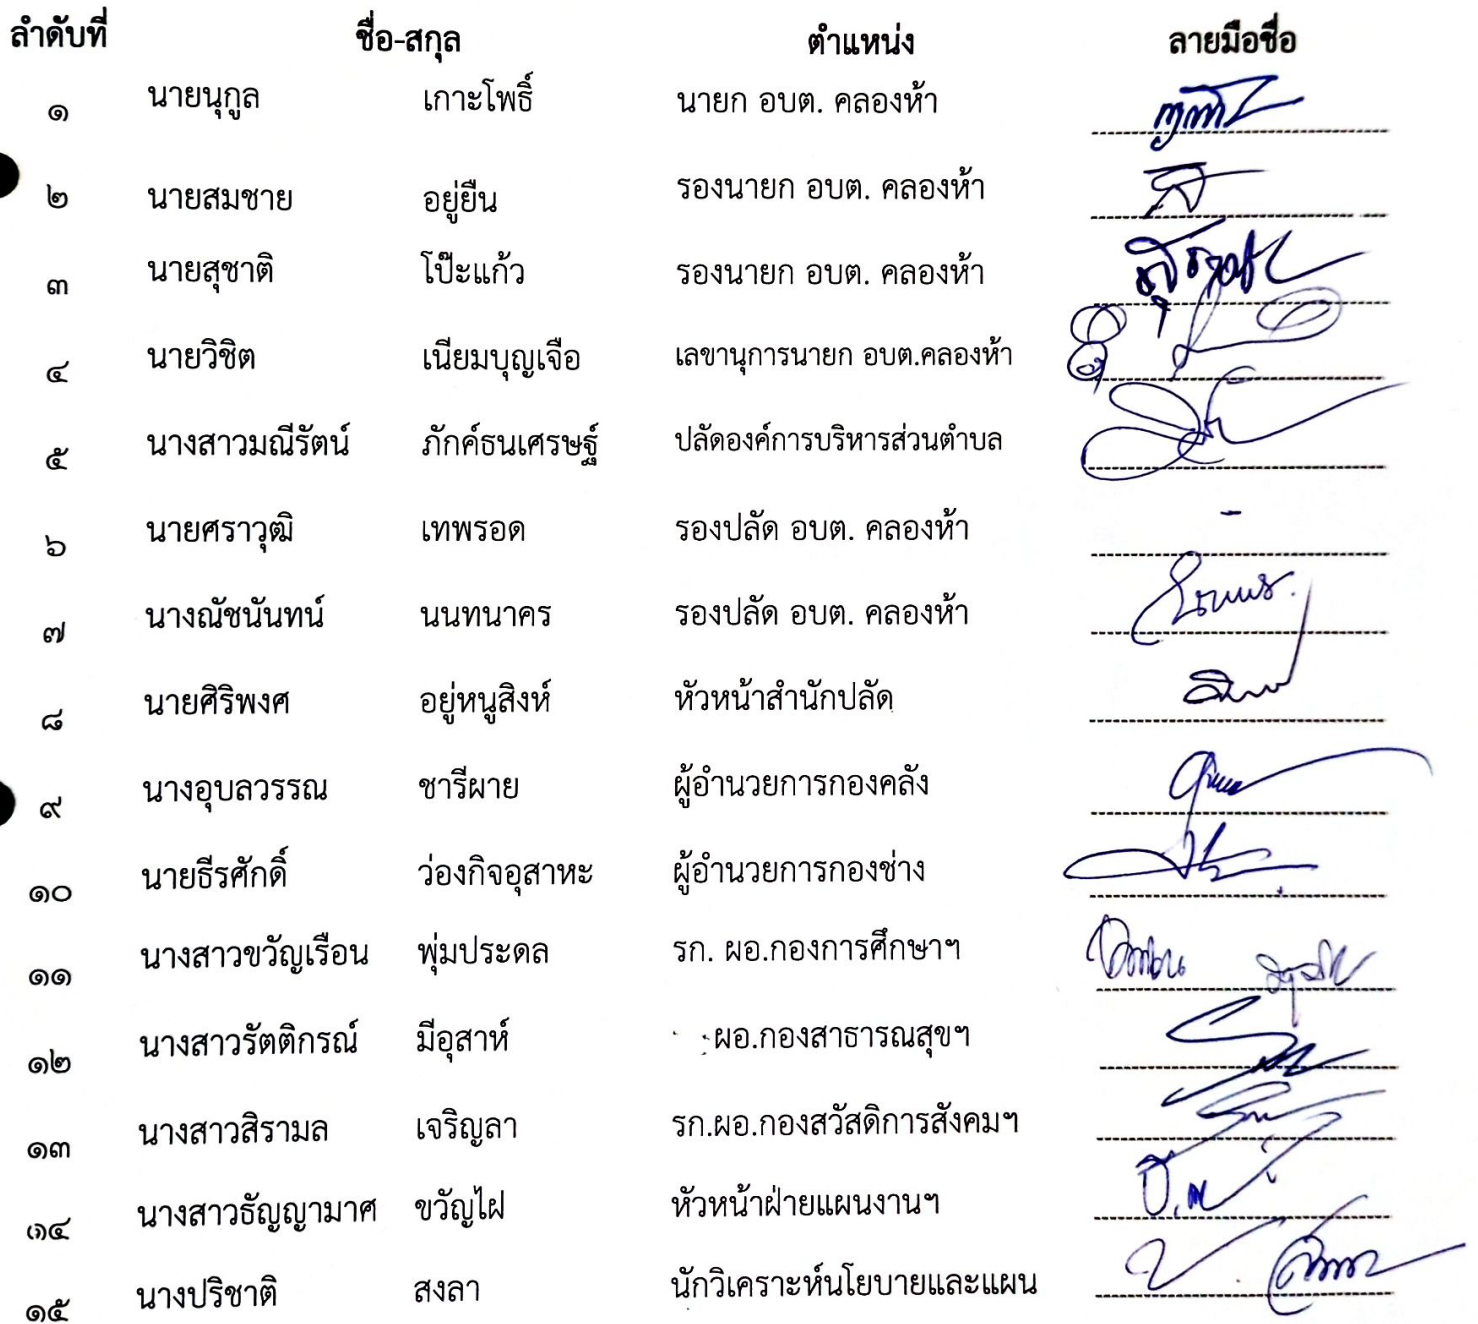 ลำดับที่ ชื่อ-สกุล ตำแหน่ง ลายมือชื่อ
๑ นายนุกูล เกาะโพธิ์ นายก อบต. คลองห้า
๒ นายสมชาย อยู่ยืน รองนายก อบต. คลองห้า
๓ นายสุชาติ โป๊ะแก้ว รองนายก อบต. คลองห้า
๔ นายวิชิต เนียมบุญเจือ เลขานุการนายก อบต.คลองห้า
๕ นางสาวมณีรัตน์ ภักค์ธนเศรษฐ์ ปลัดองค์การบริหารส่วนตำบล
๖ นายศราวุฒิ เทพรอด รองปลัด อบต. คลองห้า -
๗ นางณัชนันทน์ นนทนาคร รองปลัด อบต. คลองห้า
๘ นายศิริพงศ อยู่หนูสิงห์ หัวหน้าสำนักปลัด
๙ นางอุบลวรรณ ชารีผาย ผู้อำนวยการกองคลัง
๑๐ นายธีรศักดิ์ ว่องกิจอุสาหะ ผู้อำนวยการกองช่าง
๑๑ นางสาวขวัญเรือน พุ่มประดล รก. ผอ.กองการศึกษาฯ
๑๒ นางสาวรัตติกรณ์ มีอุสาห์ ผอ.กองสาธารณสุขฯ
๑๓ นางสาวสิรามล เจริญลา รก.ผอ.กองสวัสดิการสังคมฯ
๑๔ นางสาวธัญญามาศ ขวัญไฝ หัวหน้าฝ่ายแผนงานฯ
๑๕ นางปริชาติ สงลา นักวิเคราะห์นโยบายและแผน